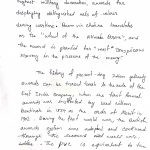 highest military decoration awards for
displaying distinguished acts of valour
during wartime. Param vir chakra translates
as the "wheel of the ultimate brave", and
the award is granted for "most conspicuous
bravery in the presence of the enemy."
The history of present-day Indian gallantry
awards can be traced back to the rule of the
East India Company, when the first formal
awards was instituted by Lord William
Bentinck in 1834 as the order of Merit in
1902. During the first world war, the British
awards system was adopted and continued
through the second world war.
The PVC is equivalent to the